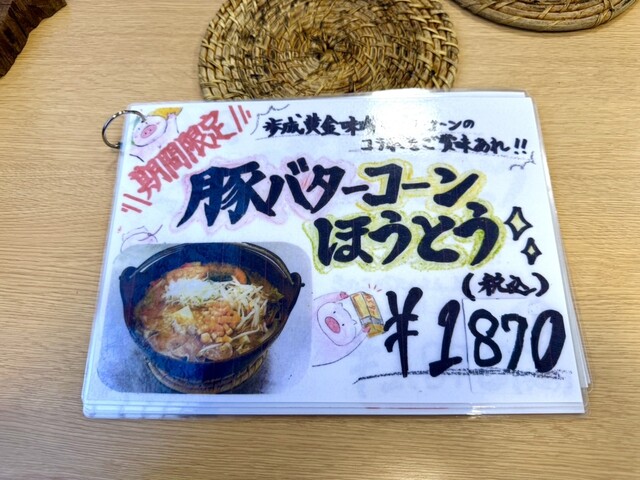 期間限定
歩成黄金味噌 コーンの
コラボをご賞味あれ!!
豚バターコーン
ほうとう
(税込)
¥1870